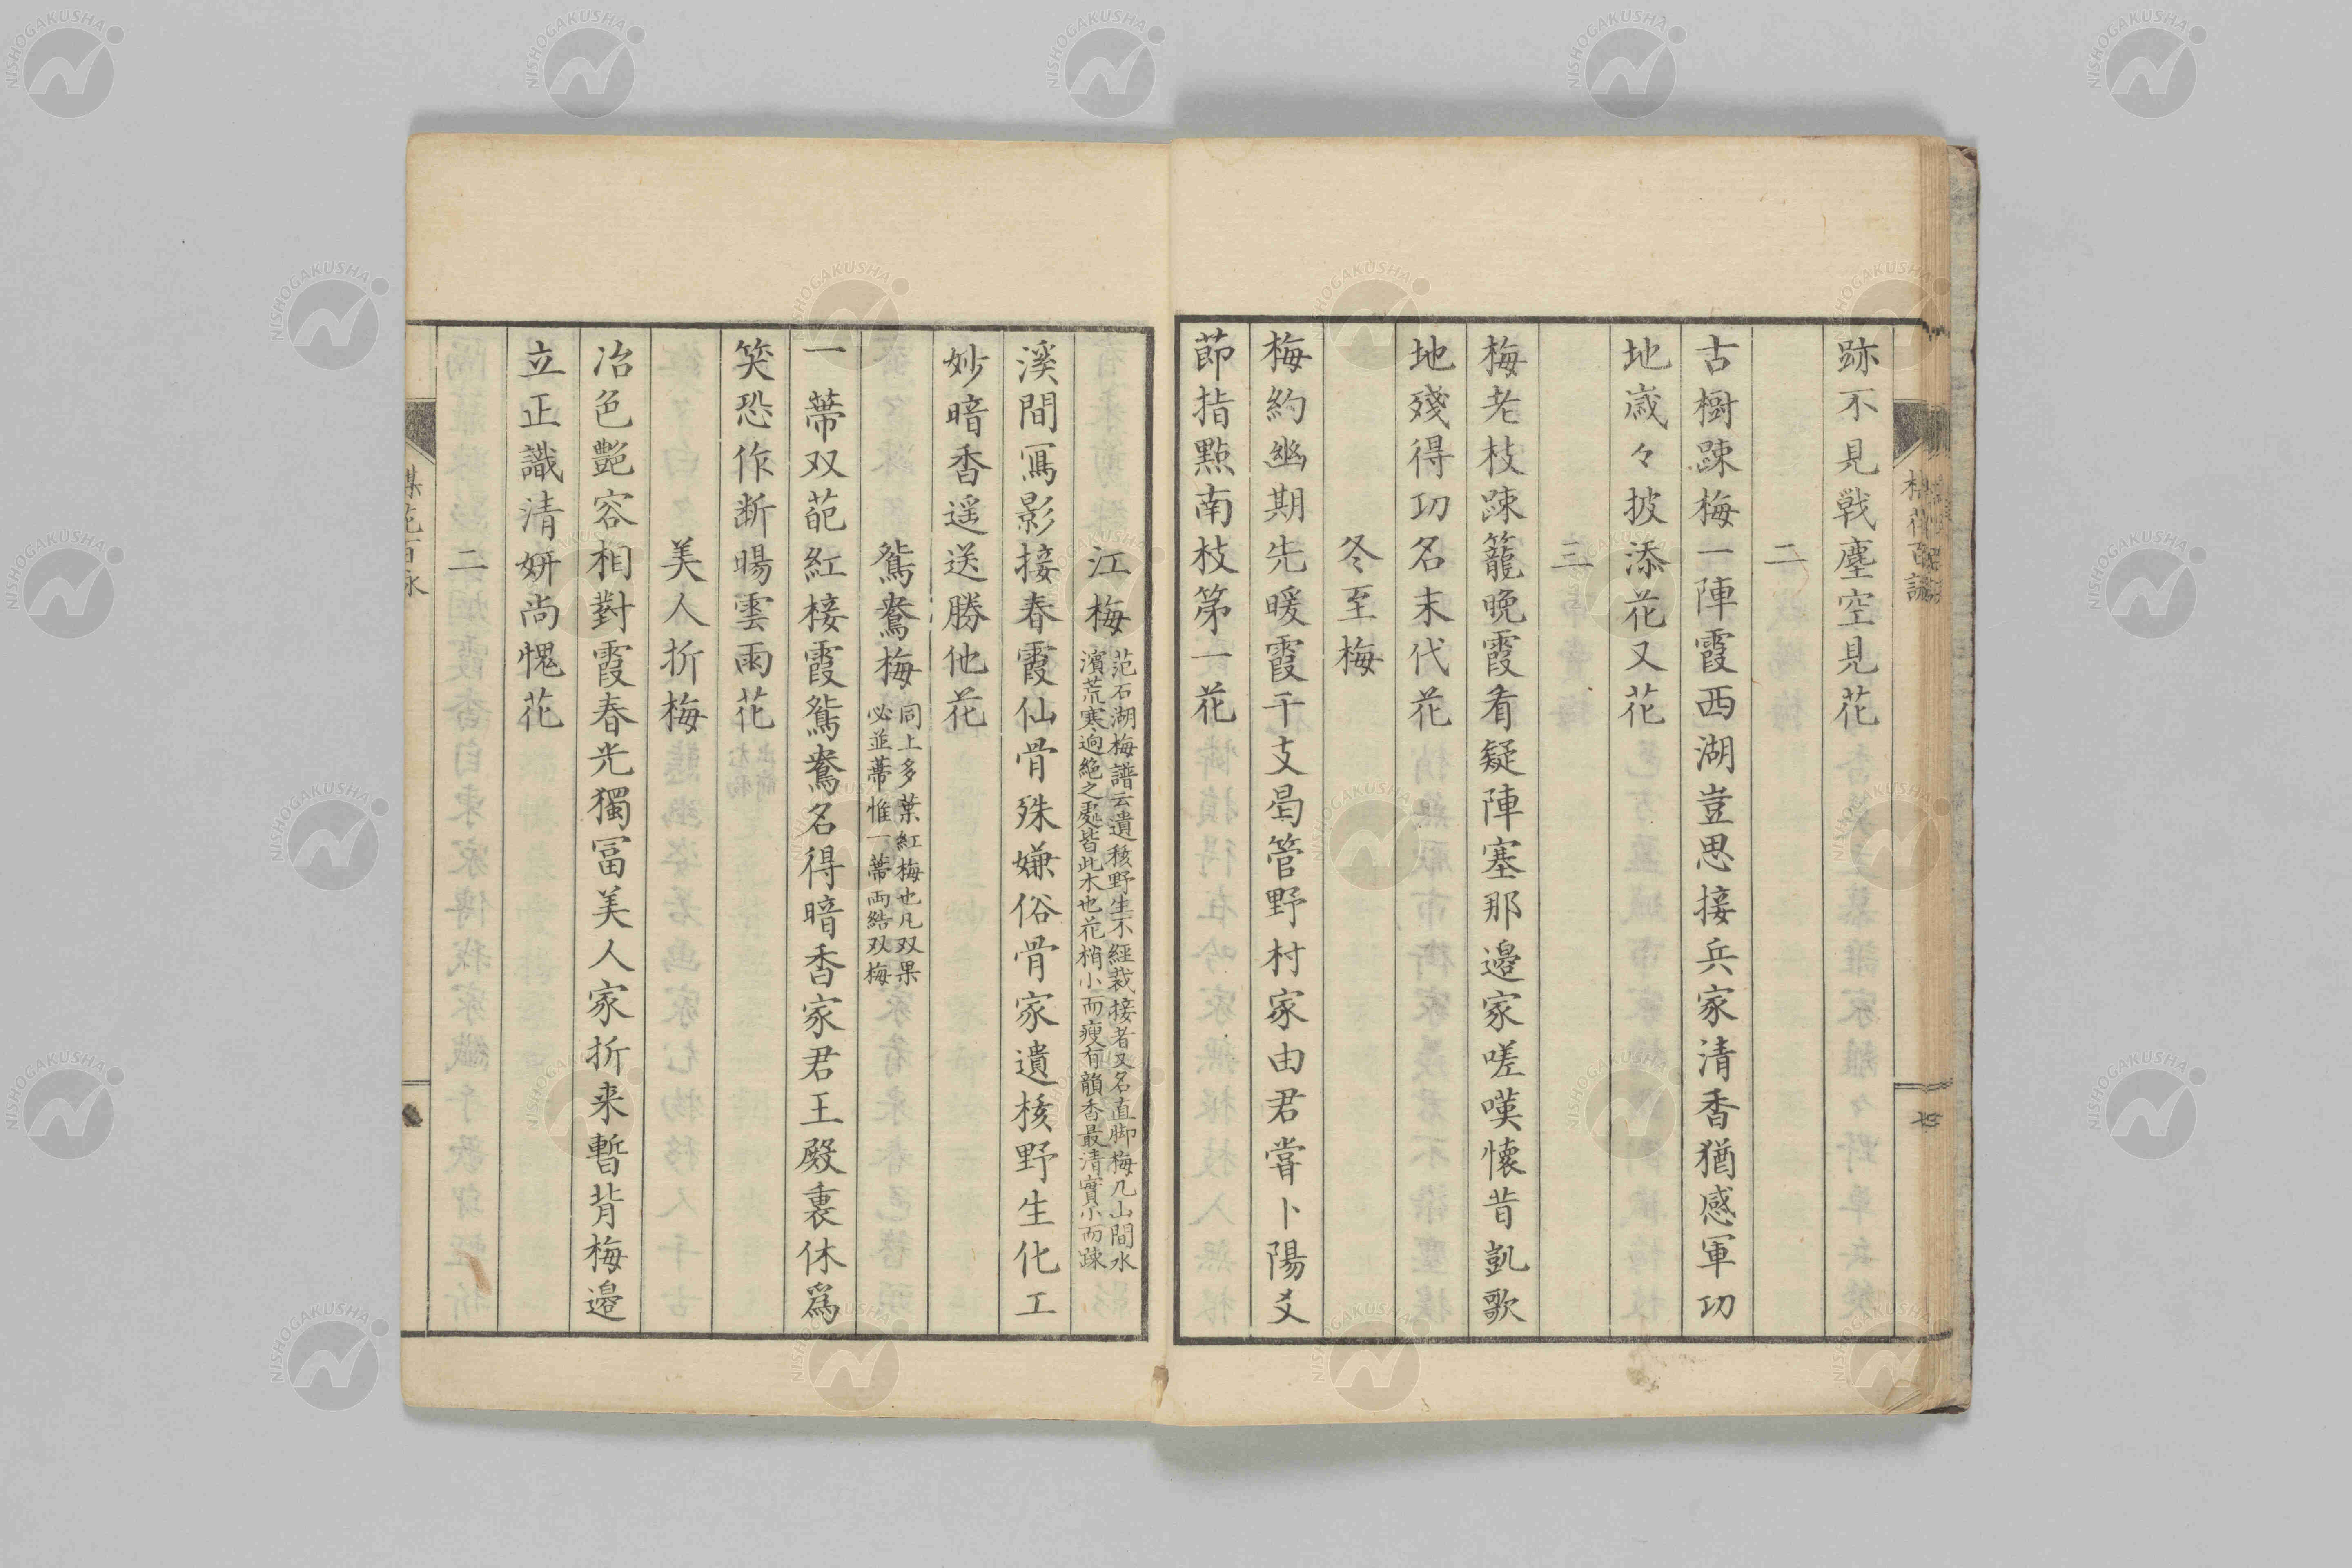 跡不見戦塵空見花
二
古樹踈梅一陣霞西湖豈思接兵家清香猶感軍功
地歳々披添花又花
三
梅老枝踈籠晩霞看疑陣塞那邉家嗟嘆懐昔凱歌
地殘得功名末代花
冬至梅
梅約幽期先暖霞干支曷管野村家由君嘗卜陽爻
節指點南枝第一花
江梅
范石湖梅譜云遺核野生不經栽接者又名直脚梅凡山間水
濱荒寒逈絶之處皆此木也花梢小而瘦有韻香最清實小而踈
溪間冩影接春霞仙骨殊嫌俗骨家遺核野生化工
妙暗香遥送勝他花
鴛鴦梅
同上多葉紅梅也凡双果
必並蒂惟一蒂両結双梅
一蒂双葩紅接霞鴛鴦名得暗香家君王殿裏休爲
笑恐作断暘雲雨花
美人折梅
冶色艶容相對霞春光獨冨美人家折来暫背梅邉
立正識清妍尚愧花
二
梅花百詠
NISHOGAKUSHA